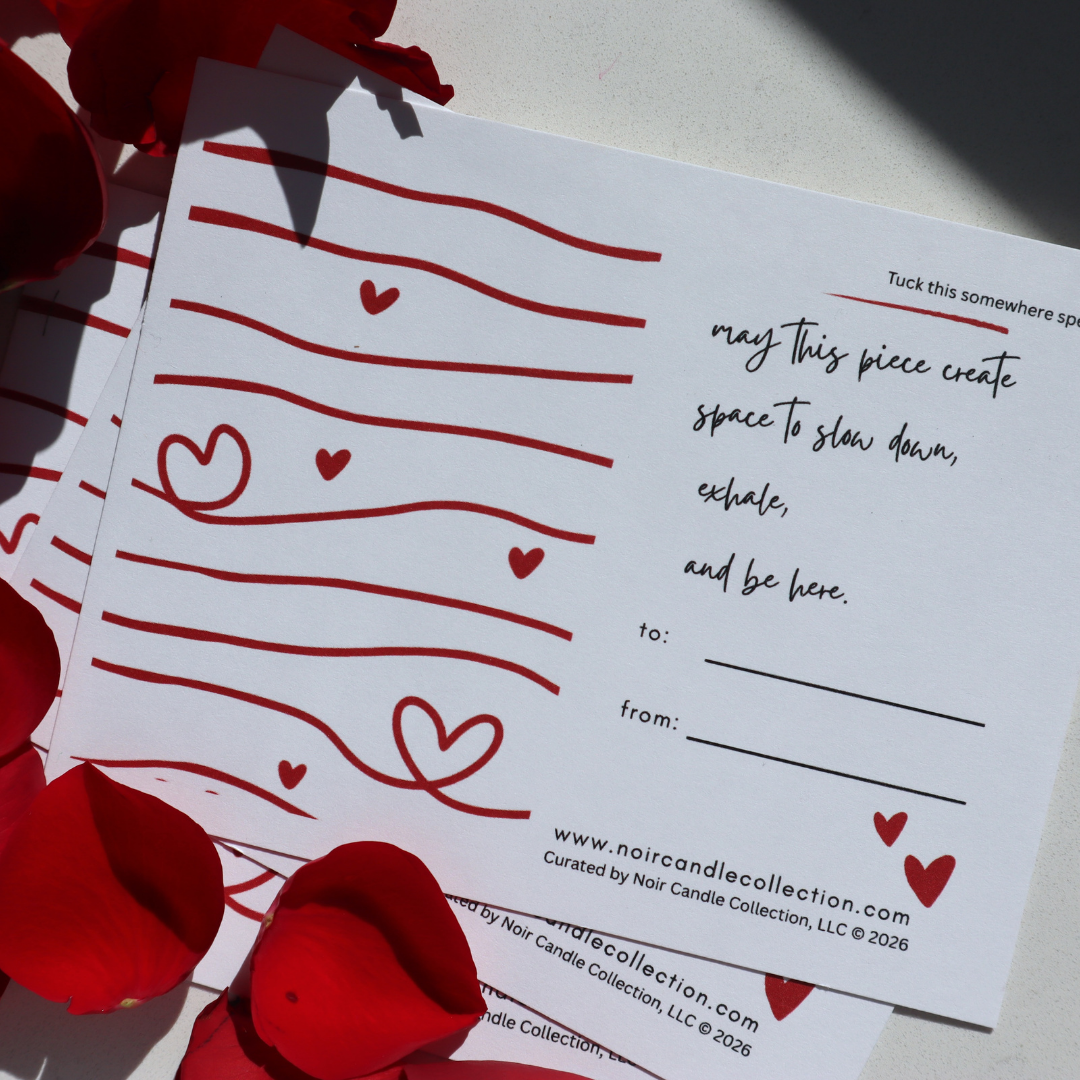 Tuck this somewhere
may this piece create
space to slow down,
exhale,
and be here.
to:
from:
www.noircandlecollection.com
Curated by Noir Candle Collection, LLC © 2026
by Noir Candle Collection, LLC © 2026
Candle Collection,